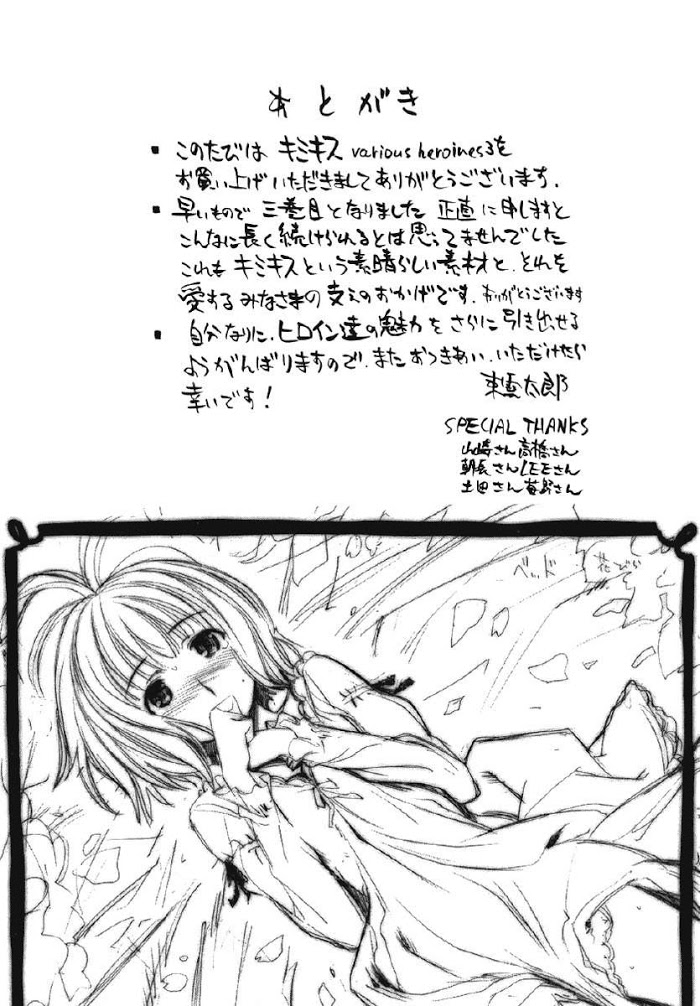 あとがき
▪ このたびは キミキス various heroines 3を
お買い上げいただきましてありがとうございます.
▪ 早いもので 三巻目となりました 正直に申しますと
こんなに長く続けられるとは思ってませんでした
これも キミキスという素晴らしい素材と、それを
愛するみなさまの支えのおかげです. ありがとうございます
▪ 自分なりに、ヒロイン達の魅力をさらに引き出せる
ようがんばりますので、またおつきあい、いただけたら
幸いです!
東雲太郎
SPECIAL THANKS
山崎さん 高橋さん
朝長さん LEEさん
土田さん 菅野さん
ベッド
花びら